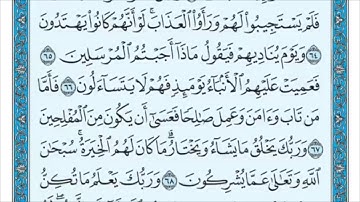 فَلَمْ يَسْتَجِيبُوا۟ لَهُمْ وَرَأَوُا۟ ٱلْعَذَابَ ۚ لَوْ أَنَّهُمْ كَانُوا۟ يَهْتَدُونَ
﴿٦٤﴾ وَيَوْمَ يُنَادِيهِمْ فَيَقُولُ مَاذَآ أَجَبْتُمُ ٱلْمُرْسَلِينَ ﴿٦٥﴾
فَعَمِيَتْ عَلَيْهِمُ ٱلْأَنۢبَآءُ يَوْمَئِذٍ فَهُمْ لَا يَتَسَآءَلُونَ ﴿٦٦﴾ فَأَمَّا
مَن تَابَ وَءَامَنَ وَعَمِلَ صَٰلِحًا فَعَسَىٰٓ أَن يَكُونَ مِنَ ٱلْمُفْلِحِينَ
﴿٦٧﴾ وَرَبُّكَ يَخْلُقُ مَا يَشَآءُ وَيَخْتَارُ ۗ مَا كَانَ لَهُمُ ٱلْخِيَرَةُ ۚ سُبْحَٰنَ
ٱللَّهِ وَتَعَٰلَىٰ عَمَّا يُشْرِكُونَ ﴿٦٨﴾ وَرَبُّكَ يَعْلَمُ مَا تُكِنُّ